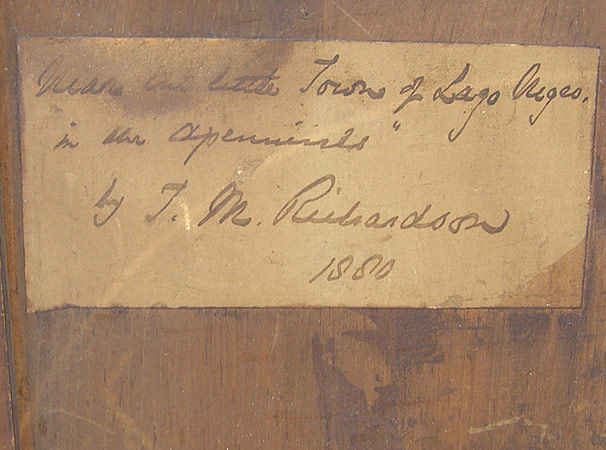 Near the little Town of Lago Negro.
in the Apennines"
by T. M. Richardson
1880